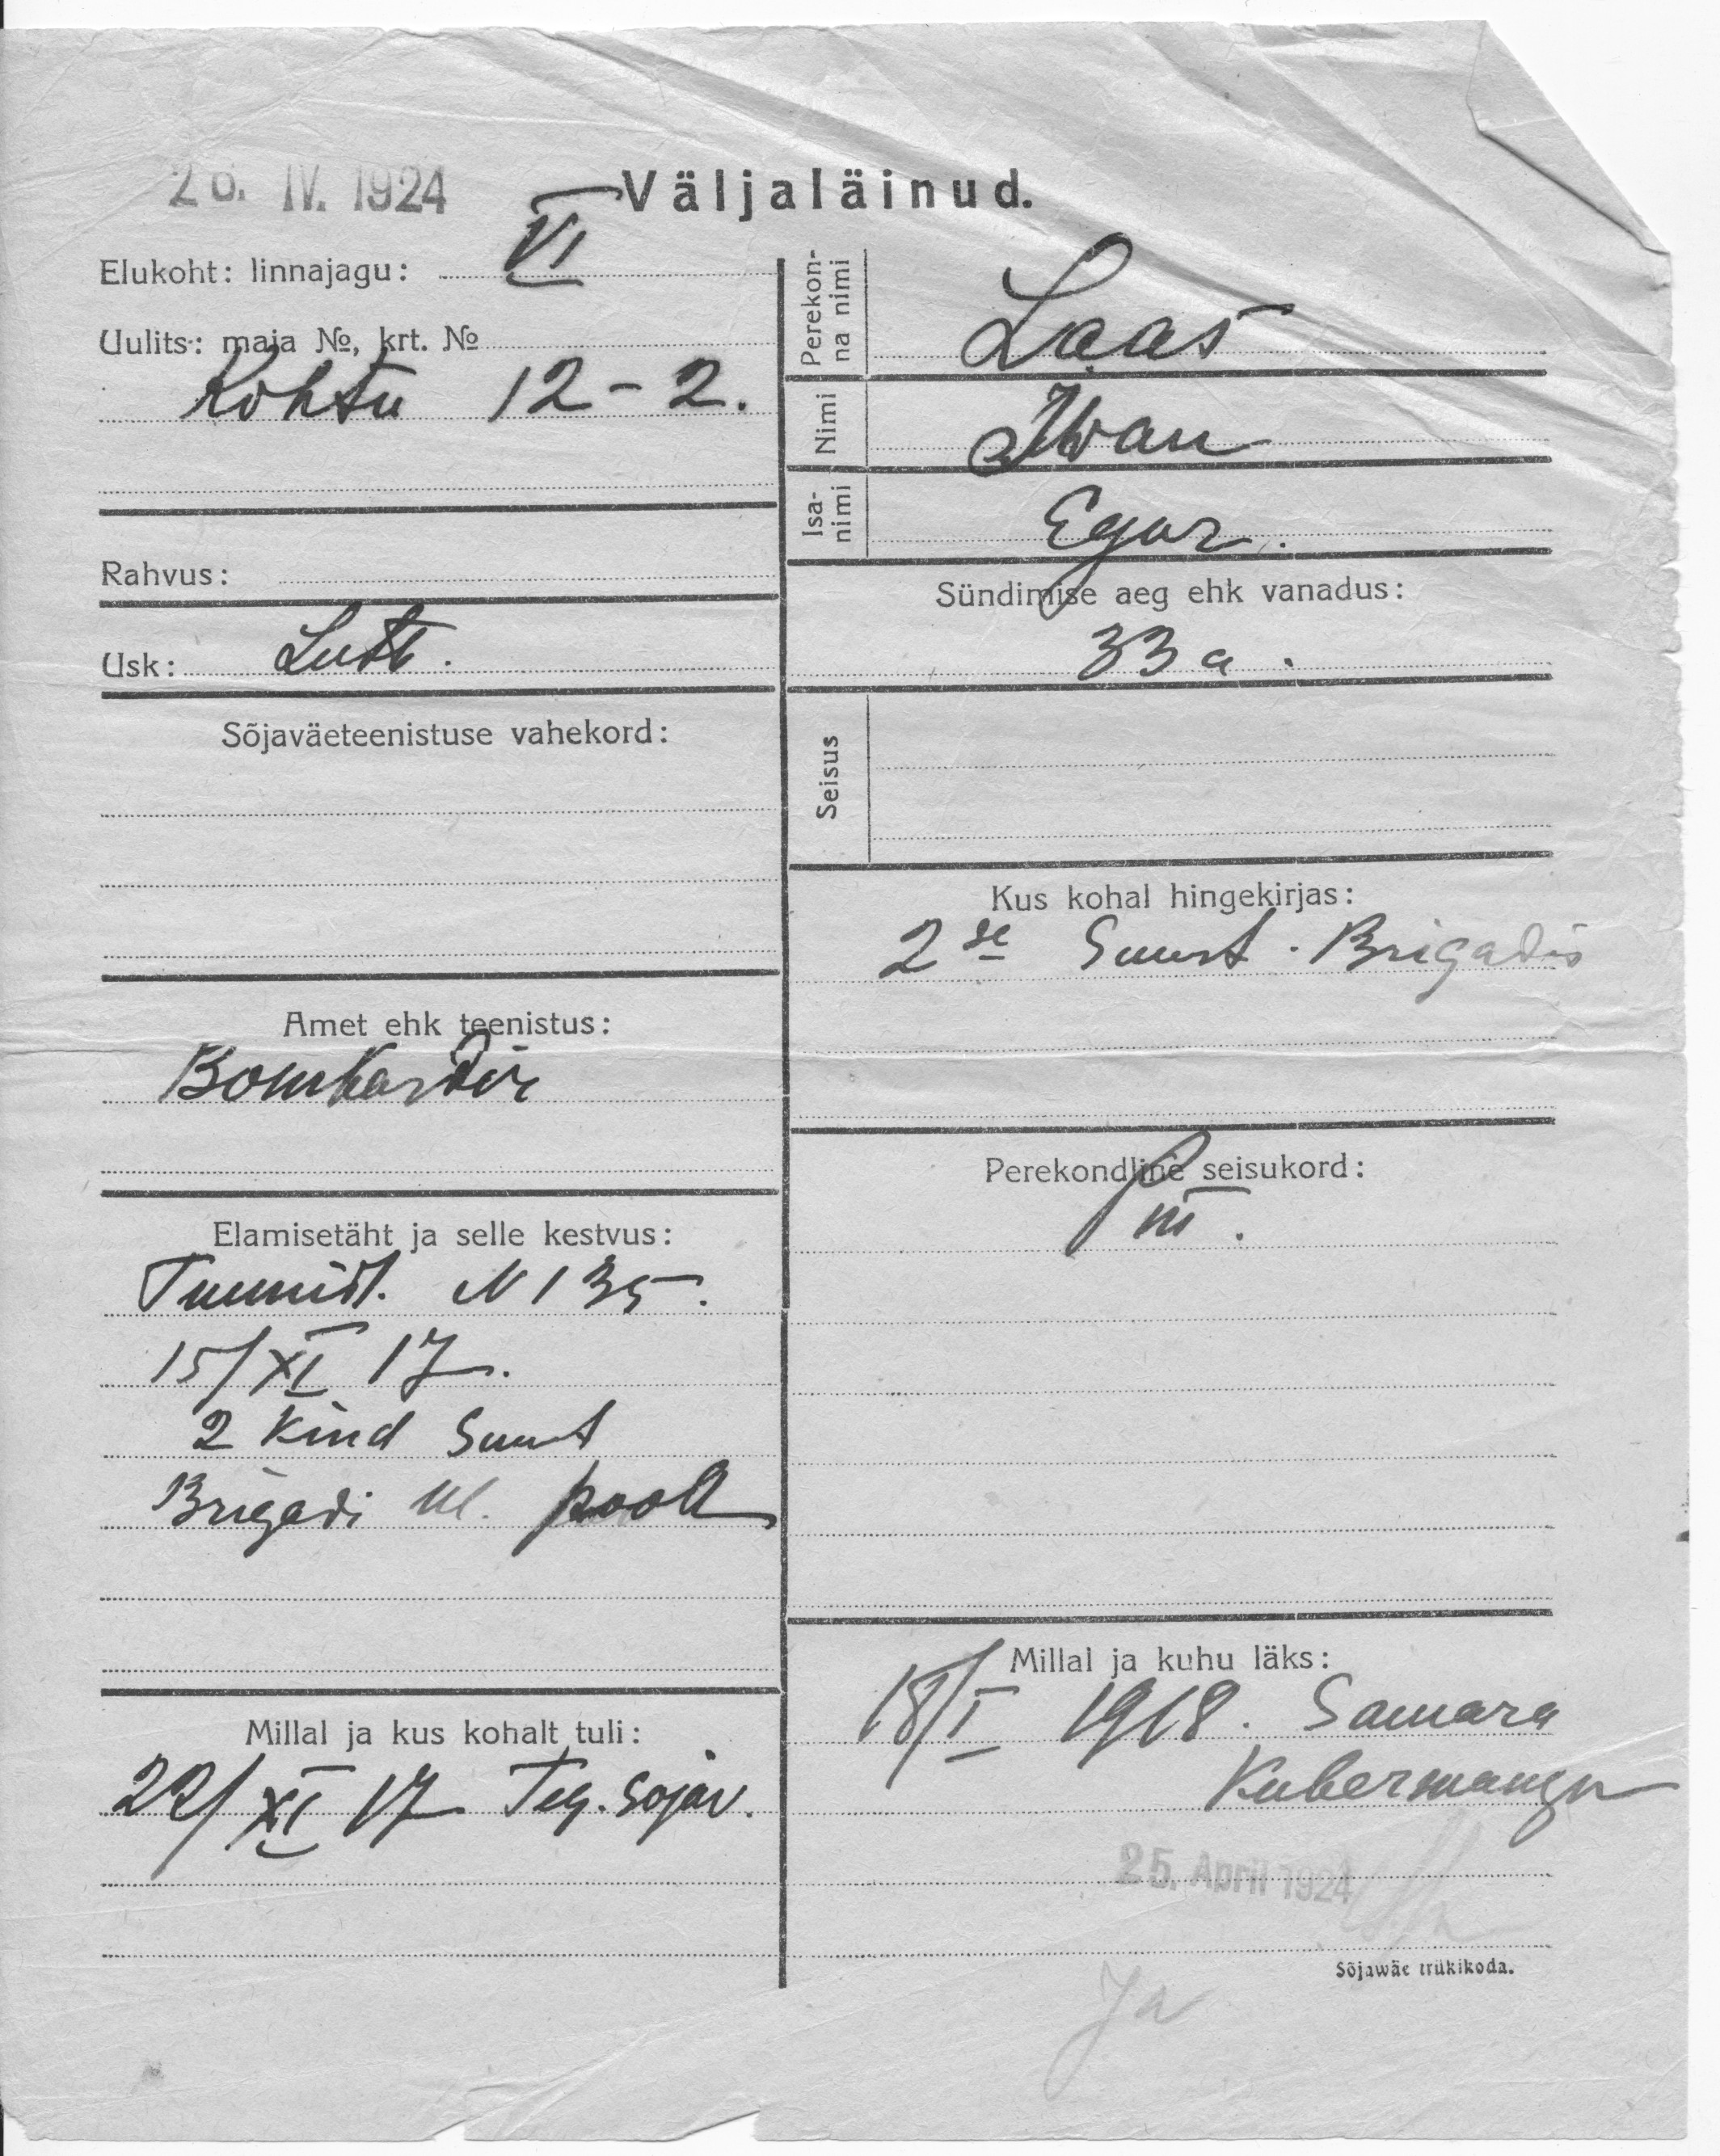 26. IV. 1924
Väljaläinud.
Elukoht: linnajagu: VI
Uulits: maja №, krt. №
Kohtu 12-2.
Rahvus:
Usk: Luth.
Sõjaväeteenistuse vahekord:
Amet ehk teenistus:
Bombardir
Elamisetäht ja selle kestvus:
Tunnist. N 135.
15/XI 17.
2 Kind Suurt
Brigadi ül. poolt
Millal ja kus kohalt tuli:
22/XI 17 Teg. sojav.
Perekon-
na nimi
Laas
Nimi
Iwan
Isa-
nimi
Egor.
Sündimise aeg ehk vanadus:
33 a.
Seisus
Kus kohal hingekirjas:
2se Suurt. Brigadis
Perekondline seisukord:
III.
Millal ja kuhu läks:
18/I 1918. Samara
Kubermangu
25. April 1924
Sõjawäe trükikoda.
Ja